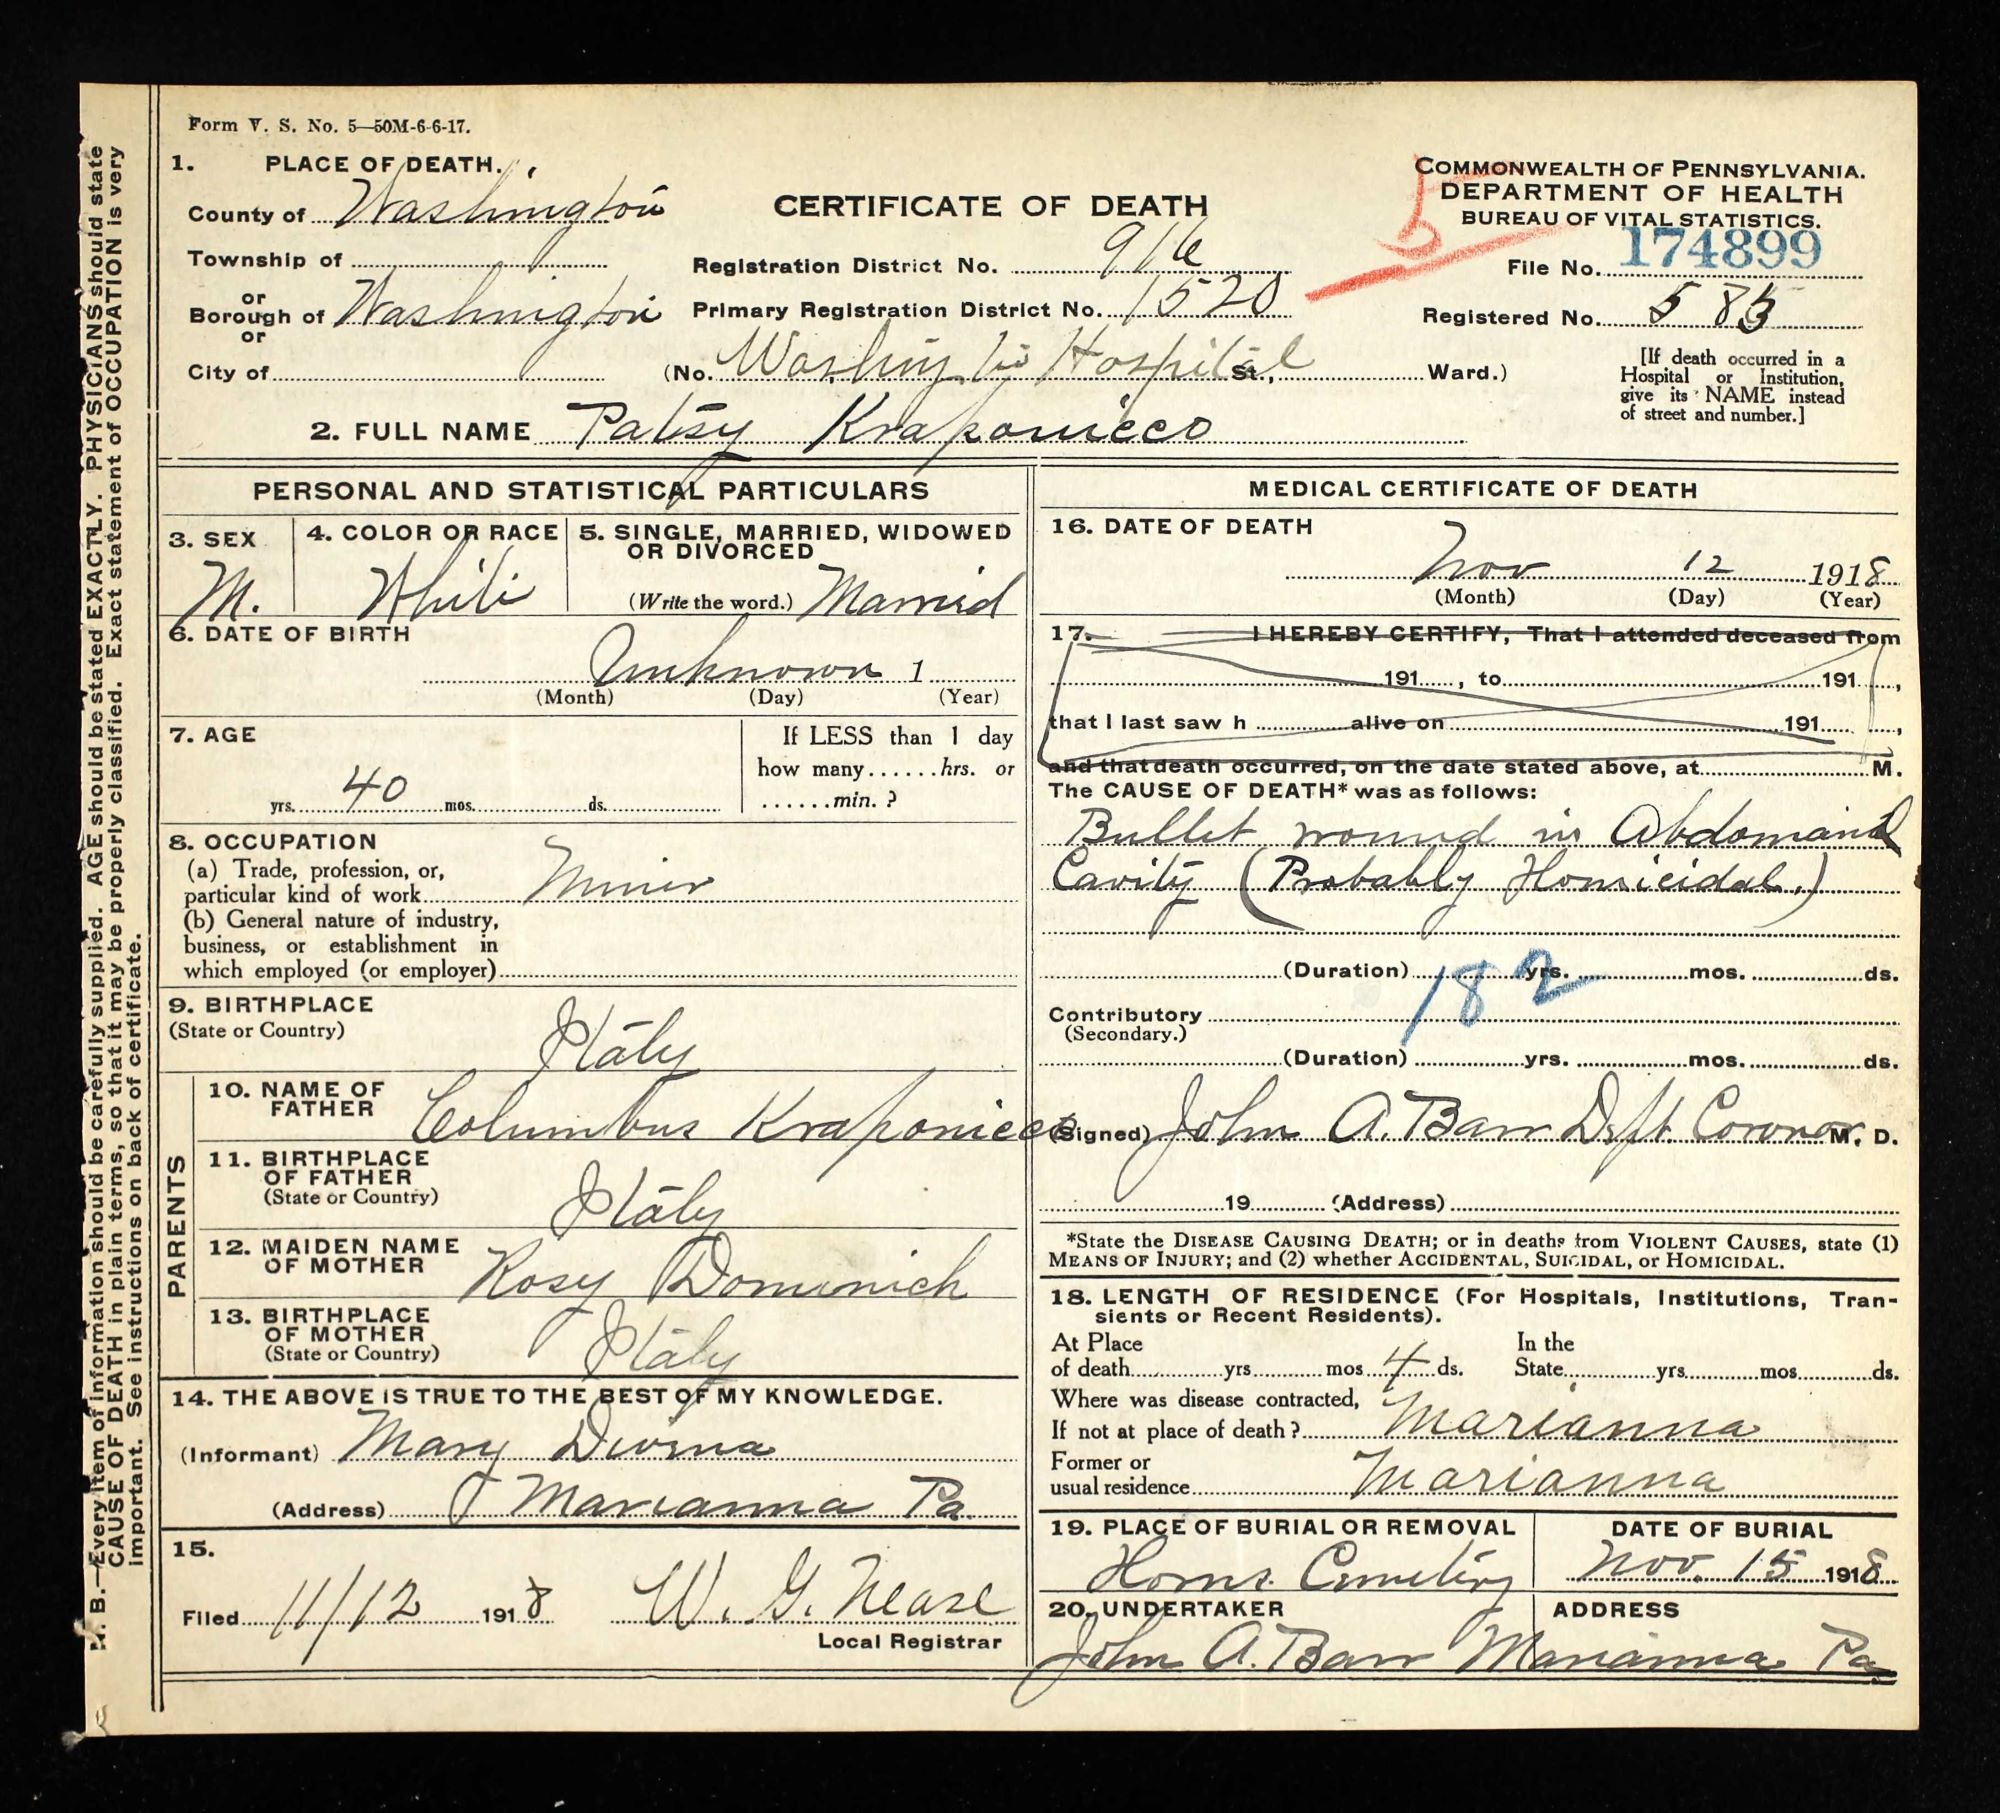 Form V. S. No. 5—50M-6-6-17.
1. PLACE OF DEATH.
County of Washington
Township of
or
Borough of Washington
or
City of
CERTIFICATE OF DEATH
Registration District No. 916
Primary Registration District No. 1520
(No. Washington Hospital St., Ward.)
COMMONWEALTH OF PENNSYLVANIA.
DEPARTMENT OF HEALTH
BUREAU OF VITAL STATISTICS.
5
File No. 174899
Registered No. 585
[If death occurred in a
Hospital or Institution,
give its NAME instead
of street and number.]
2. FULL NAME Patsy Kraponicco
PERSONAL AND STATISTICAL PARTICULARS
3. SEX
M.
4. COLOR OR RACE
White
5. SINGLE, MARRIED, WIDOWED
OR DIVORCED
(Write the word.) Married
6. DATE OF BIRTH
Unknown 1
(Month) (Day) (Year)
7. AGE
40
yrs. mos. ds.
If LESS than 1 day
how many......hrs. or
......min. ?
8. OCCUPATION
(a) Trade, profession, or,
particular kind of work Miner
(b) General nature of industry,
business, or establishment in
which employed (or employer)
9. BIRTHPLACE
(State or Country)
Italy
PARENTS
10. NAME OF
FATHER
Columbus Kraponicco
11. BIRTHPLACE
OF FATHER
(State or Country)
Italy
12. MAIDEN NAME
OF MOTHER
Rosy Dominich
13. BIRTHPLACE
OF MOTHER
(State or Country)
Italy
14. THE ABOVE IS TRUE TO THE BEST OF MY KNOWLEDGE.
(Informant) Mary
(Address) Marianna Pa.
15.
Filed 11/12 1918 W. G. Nease
Local Registrar
MEDICAL CERTIFICATE OF DEATH
16. DATE OF DEATH
Nov 12 1918
(Month) (Day) (Year)
17. I HEREBY CERTIFY, That I attended deceased from
191 , to 191 ,
that I last saw h alive on 191 ,
and that death occurred, on the date stated above, at M.
The CAUSE OF DEATH* was as follows:
Bullet wound in Abdominal
Cavity (Probably Homicidal.)
(Duration) yrs. mos. ds.
182
Contributory
(Secondary.)
(Duration) yrs. mos. ds.
(Signed) John A. Barr Dept. Coronor M. D.
19 (Address)
*State the DISEASE CAUSING DEATH; or in deaths from VIOLENT CAUSES, state (1)
MEANS OF INJURY; and (2) whether ACCIDENTAL, SUICIDAL, or HOMICIDAL.
18. LENGTH OF RESIDENCE (For Hospitals, Institutions, Tran-
sients or Recent Residents).
At Place
of death yrs mos 4 ds.
In the
State yrs mos ds.
Where was disease contracted,
If not at place of death? Marianna
Former or
usual residence Marianna
19. PLACE OF BURIAL OR REMOVAL
Horns Cemetery
DATE OF BURIAL
Nov. 15 1918
20. UNDERTAKER
John A. Barr
ADDRESS
Marianna Pa.
N. B.—Every item of information should be carefully supplied. AGE should be stated EXACTLY. PHYSICIANS should state
CAUSE OF DEATH in plain terms, so that it may be properly classified. Exact statement of OCCUPATION is very
important. See instructions on back of certificate.